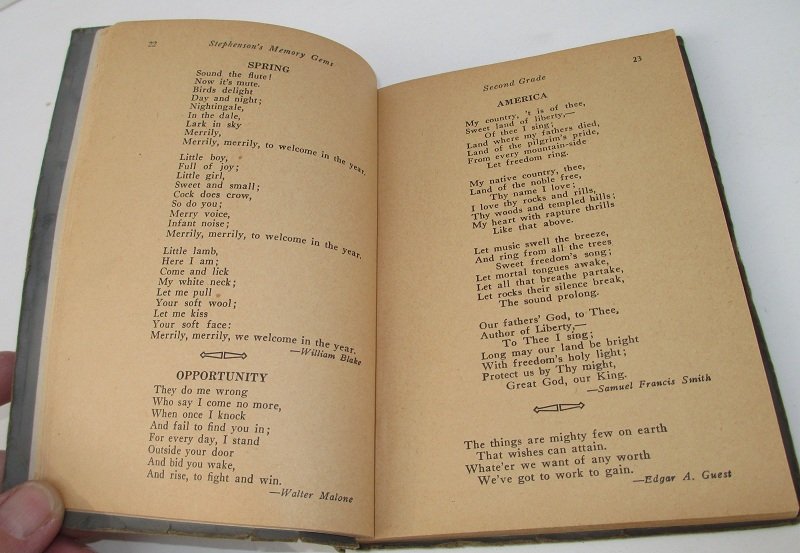 22
Stephenson's Memory Gems
SPRING
Sound the flute!
Now it's mute.
Birds delight
Day and night;
Nightingale,
In the dale,
Lark in sky
Merrily,
Merrily, merrily, to welcome in the year.
Little boy,
Full of joy;
Little girl,
Sweet and small;
Cock does crow,
So do you;
Merry voice,
Infant noise;
Merrily, merrily, to welcome in the year.
Little lamb,
Here I am;
Come and lick
My white neck;
Let me pull
Your soft wool;
Let me kiss
Your soft face:
Merrily, merrily, we welcome in the year.
—William Blake
OPPORTUNITY
They do me wrong
Who say I come no more,
When once I knock
And fail to find you in;
For every day, I stand
Outside your door
And bid you wake,
And rise, to fight and win.
—Walter Malone
Second Grade
23
AMERICA
My country, 't is of thee,
Sweet land of liberty,—
Of thee I sing;
Land where my fathers died,
Land of the pilgrim's pride,
From every mountain-side
Let freedom ring.
My native country, thee,
Land of the noble free,
Thy name I love;
I love thy rocks and rills,
Thy woods and templed hills;
My heart with rapture thrills
Like that above.
Let music swell the breeze,
And ring from all the trees
Sweet freedom's song;
Let mortal tongues awake,
Let all that breathe partake,
Let rocks their silence break,
The sound prolong.
Our fathers' God, to Thee,
Author of Liberty,—
To Thee I sing;
Long may our land be bright
With freedom's holy light;
Protect us by Thy might,
Great God, our King.
—Samuel Francis Smith
The things are mighty few on earth
That wishes can attain.
Whate'er we want of any worth
We've got to work to gain.
—Edgar A. Guest